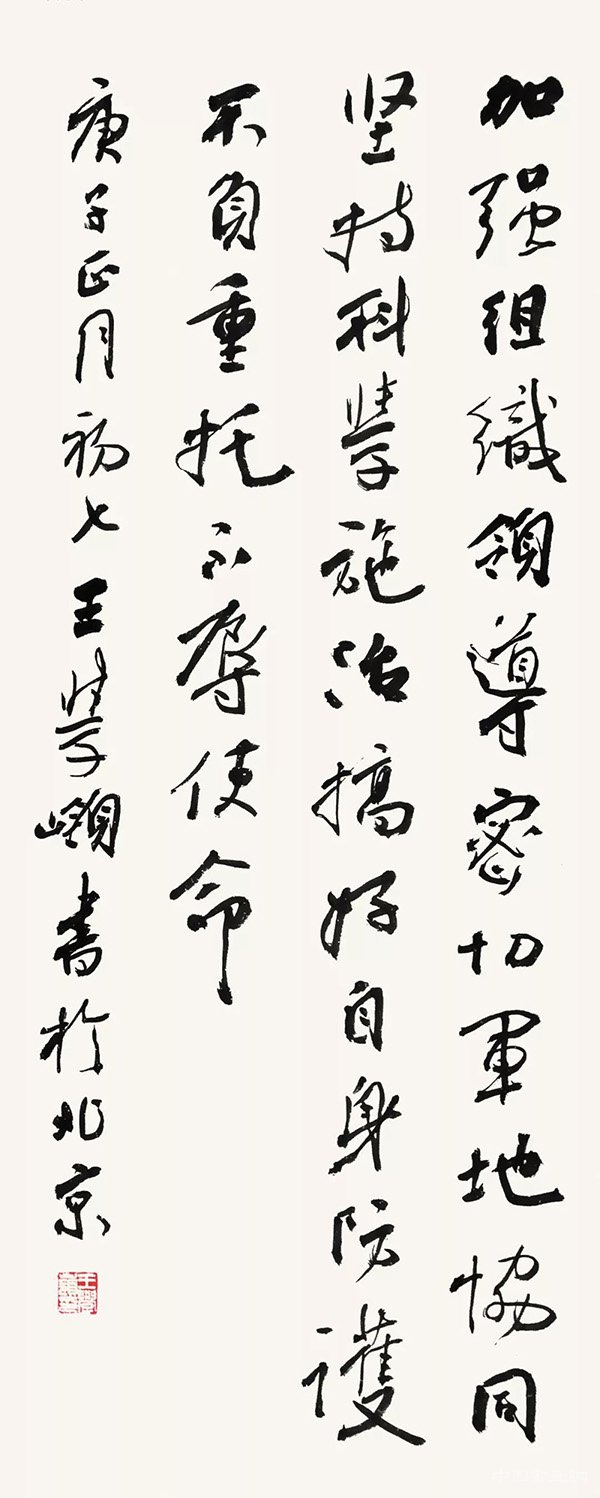 加强组織領導密切軍地協同
坚持科學施治搞好自身防護
不負重托不辱使命
庚子正月初七王學嶺書於北京